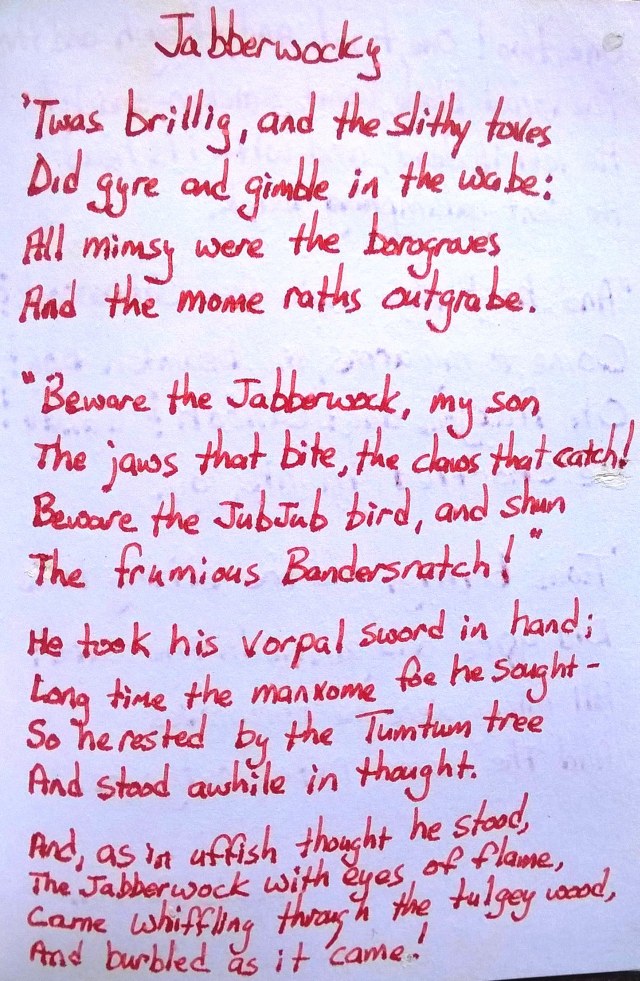 Jabberwocky
'Twas brillig, and the slithy toves
Did gyre and gimble in the wabe:
All mimsy were the borogroves
And the mome raths outgrabe.
"Beware the Jabberwock, my son
The jaws that bite, the claws that catch!
Beware the JubJub bird, and shun
The frumious Bandersnatch!"
He took his vorpal sword in hand;
Long time the manxome foe he sought-
So he rested by the Tumtum tree
And stood awhile in thought.
And, as in uffish thought he stood,
The Jabberwock with eyes of flame,
Came whiffling through the tulgey wood,
And burbled as it came!